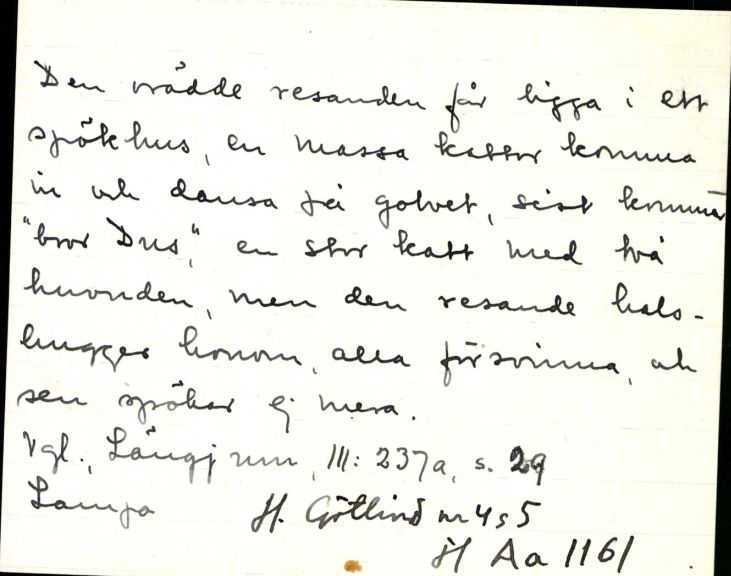 Den orädde resanden får ligga i ett
spökhus, en massa kattor komma
in och dansa på golvet, sist kommer
"bror Dus", en stor katt med två
huvuden, men den resande hals-
hugger honom, alla försvinna, och
sen spökar ej mera.
Vgl., Långjum, III: 237a, s. 29
Larvja
H. Götlind nr 4 s 5
H Aa 1161